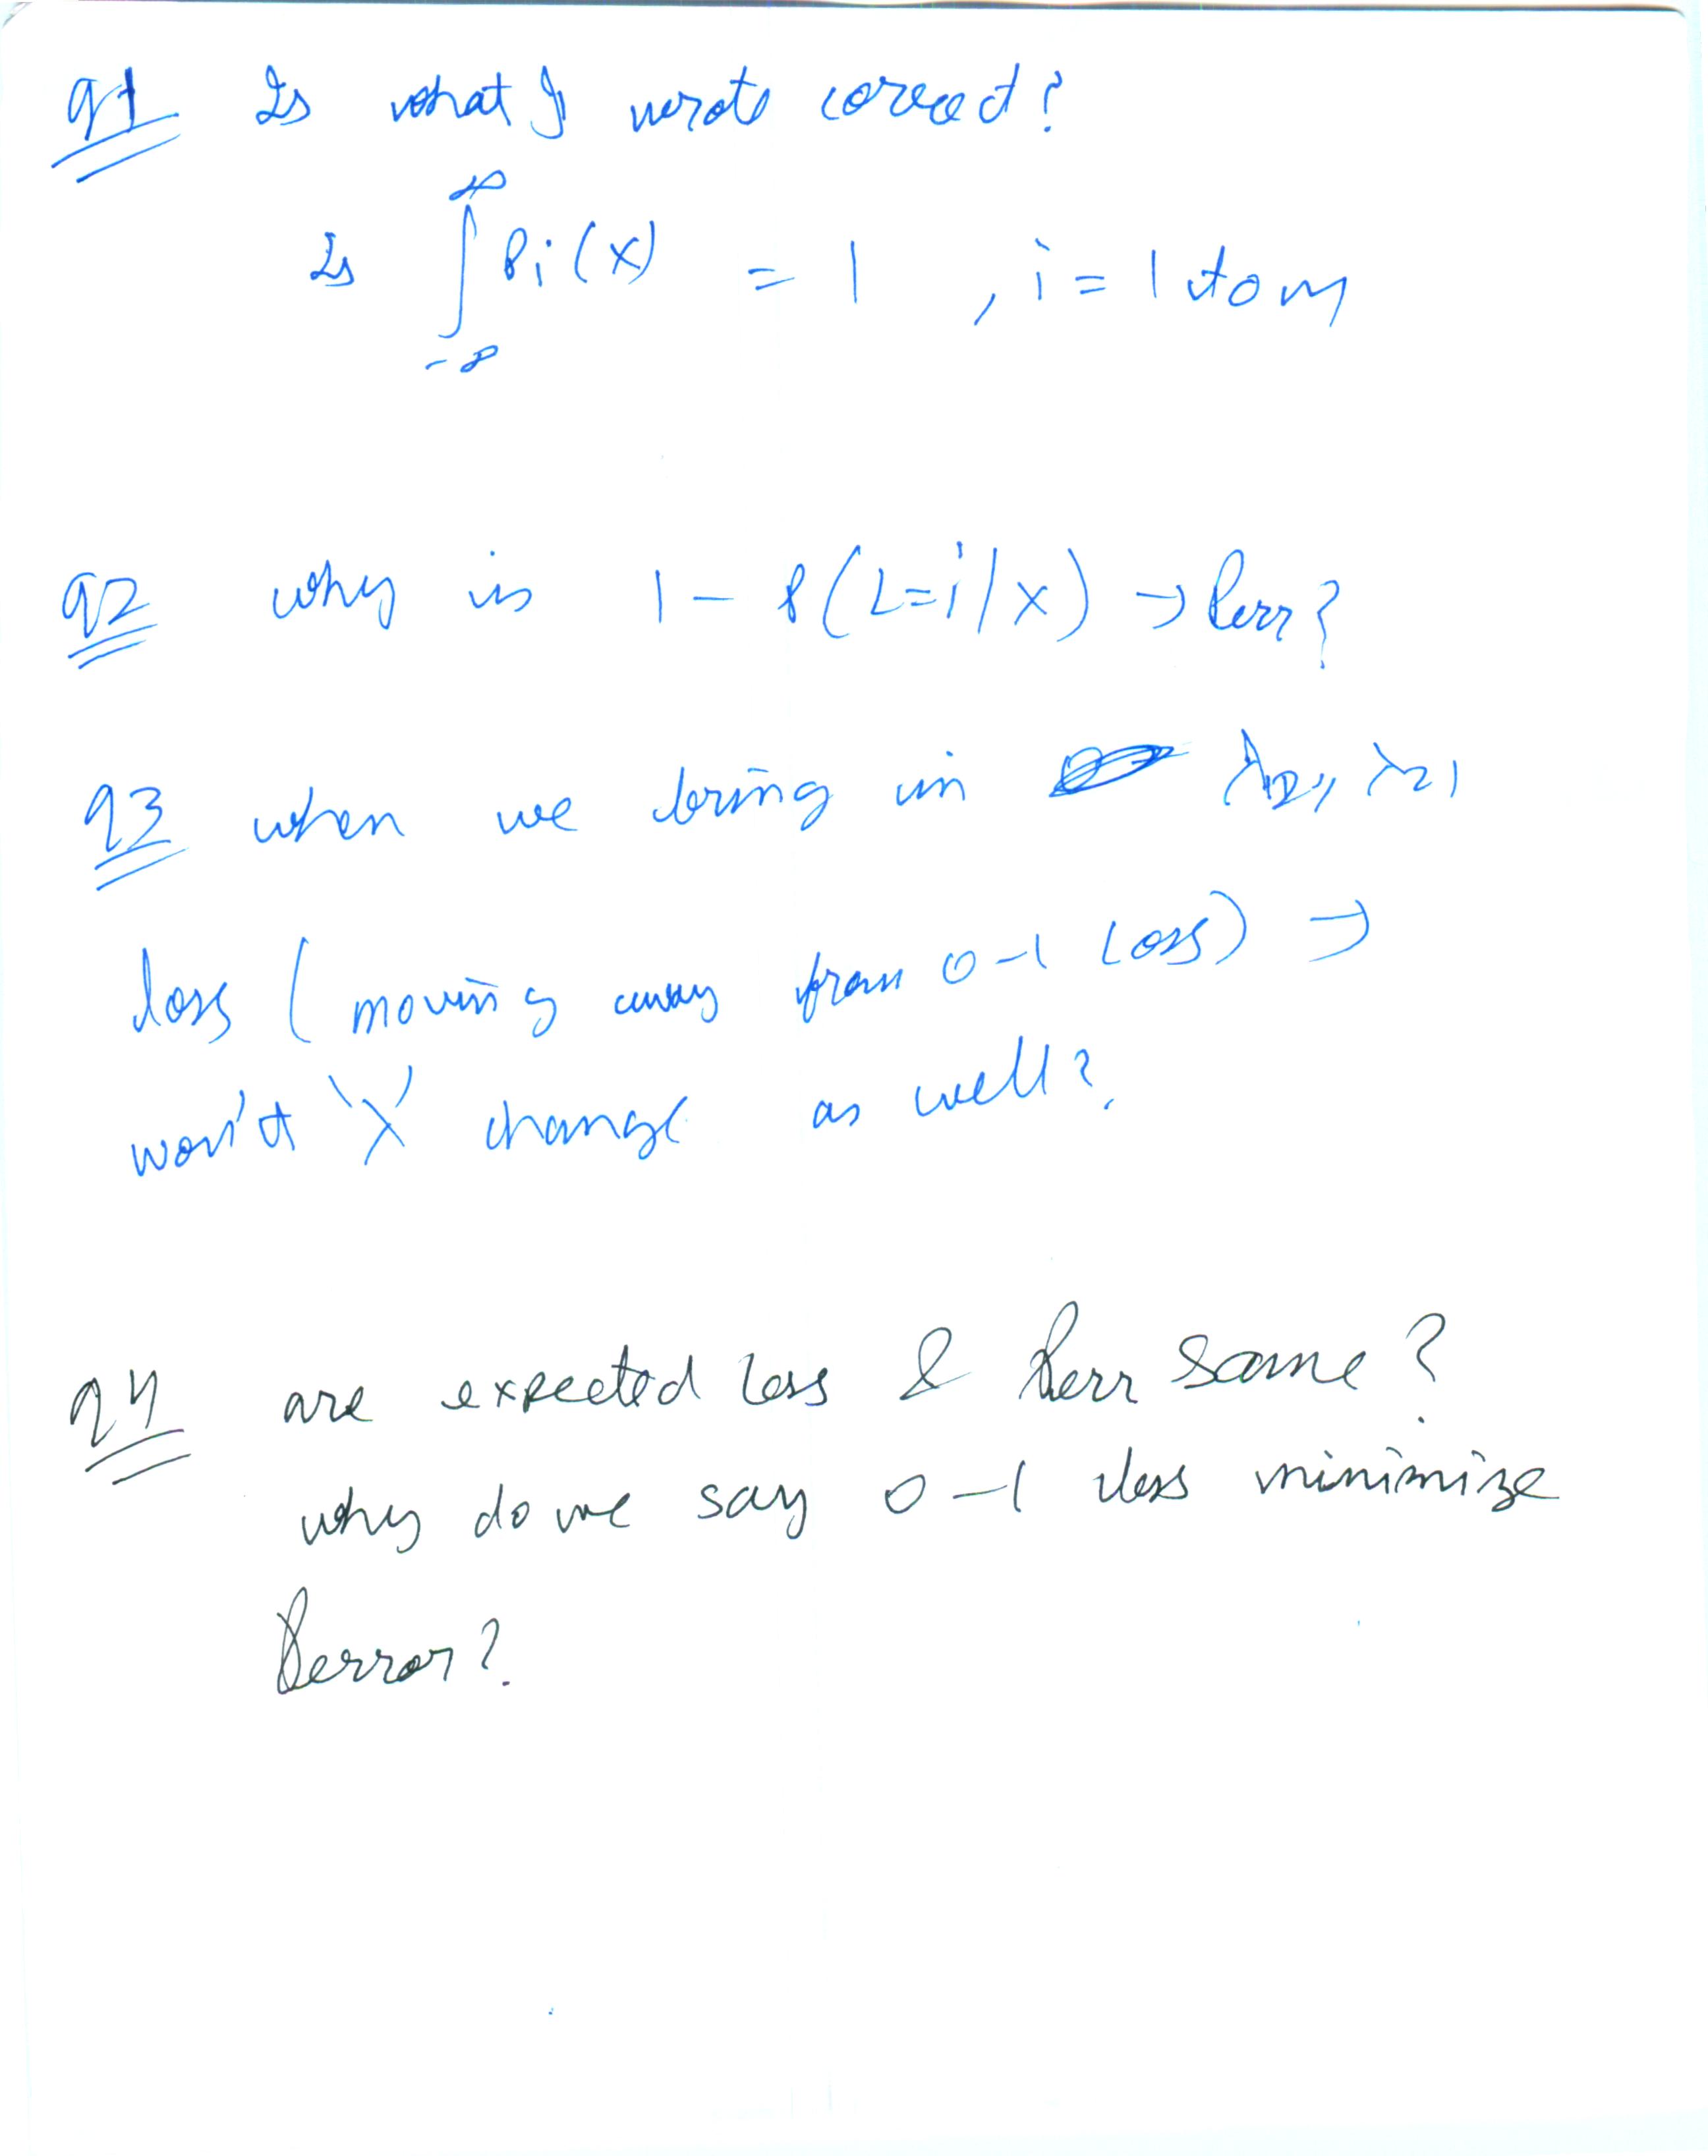 q1 Is what I wrote correct?
Is ∫_{-∞}^{∞} Pi(x) = 1 , i = 1 to m
q2 why is 1 - P(L=i/x) → Perr?
q3 when we bring in λ12, λ21
loss (moving away from 0-1 loss) →
won't 'X' change as well?
q4 are expected loss & Perr same?
why do we say 0-1 loss minimize
Perror?